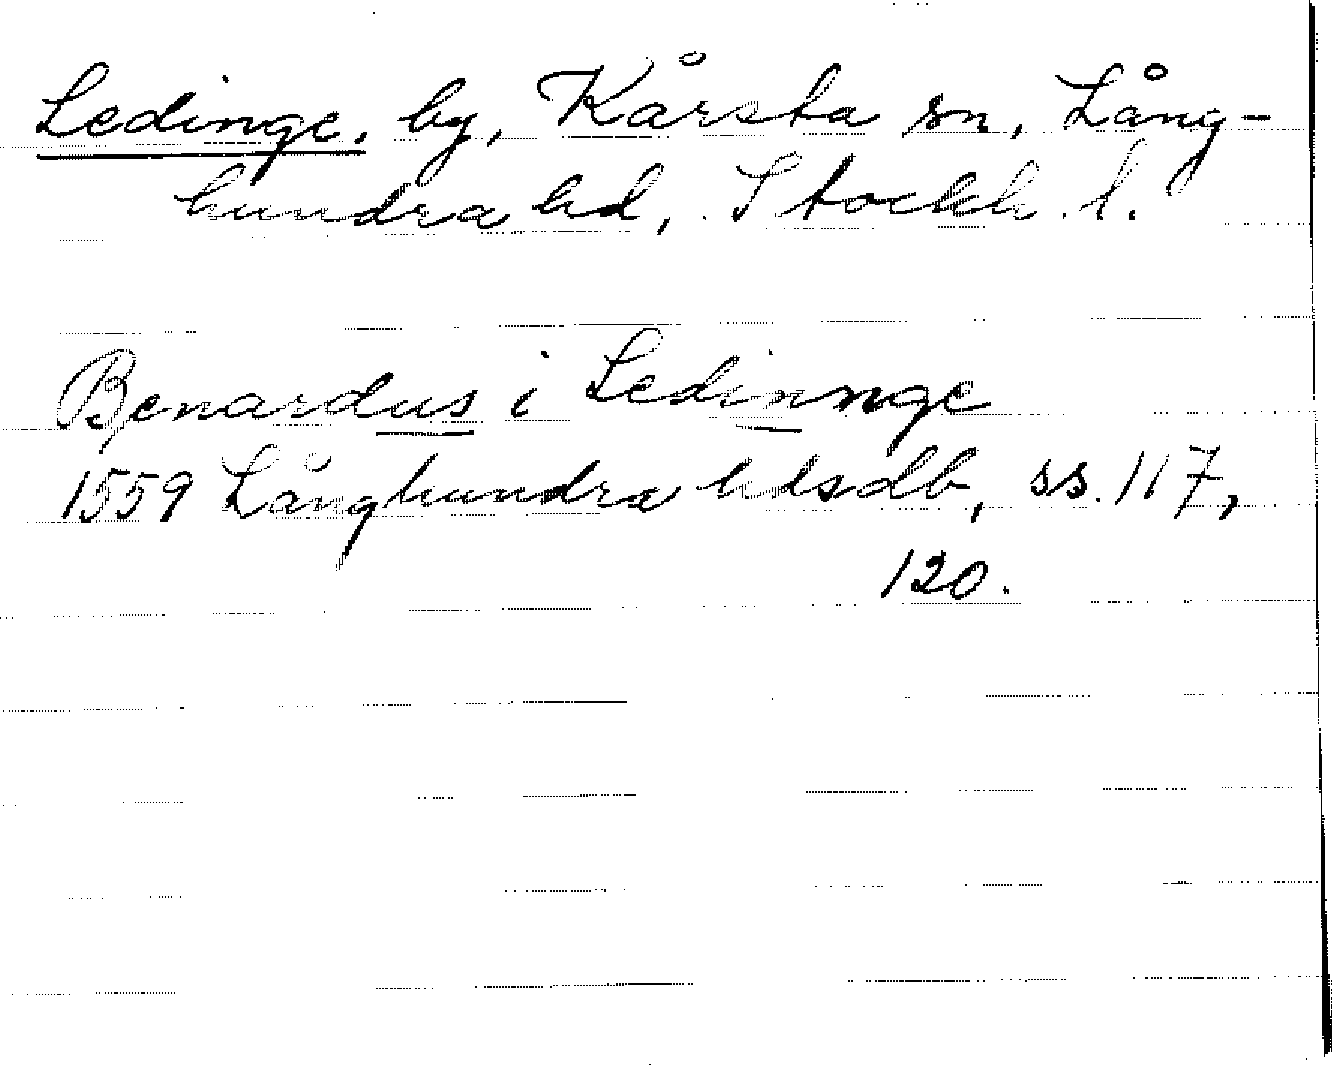 Ledinge, by, Kårsta sn, Lång-
hundra hd, Stockh. l.
Benardus i Ledinnge
1559 Långhundra hdsdb, ss. 117,
120.